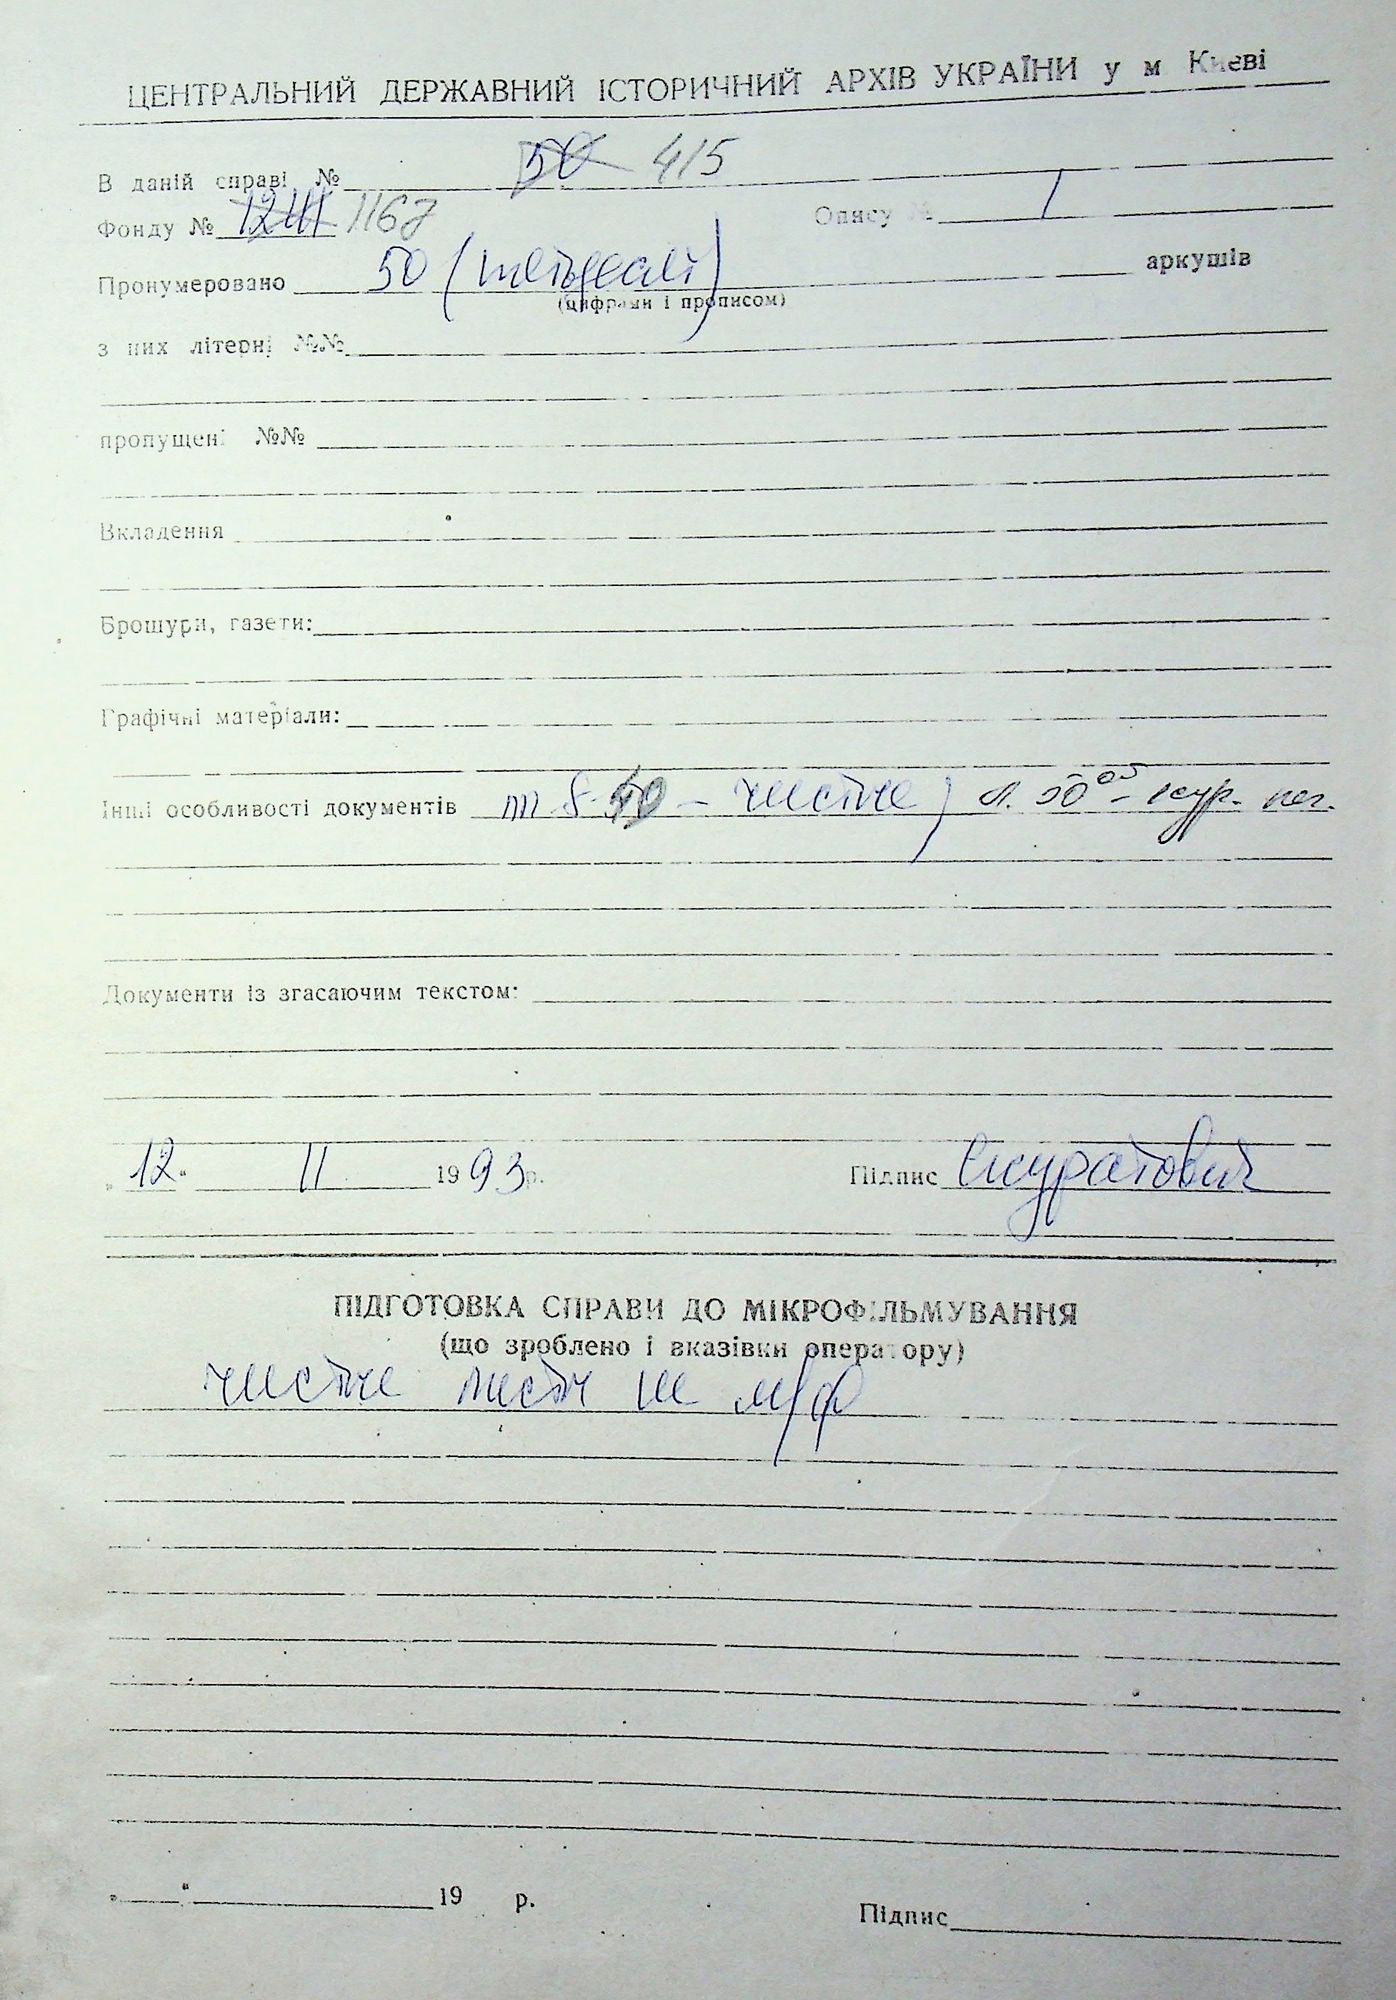 ЦЕНТРАЛЬНИЙ ДЕРЖАВНИЙ ІСТОРИЧНИЙ АРХІВ УКРАЇНИ у м Києві
В даній справі № 50 415
Фонду № 1167 Опису № 1
Пронумеровано 50 (п'ятдесят) аркушів
(цифрами і прописом)
з них літерні №№
пропущені №№
Вкладення
Брошури, газети:
Графічні матеріали:
Інші особливості документів - чисті, л. 50 об -
Документи із згасаючим текстом:
„ 12 “ II 1993 р. Підпис Скуратович
ПІДГОТОВКА СПРАВИ ДО МІКРОФІЛЬМУВАННЯ
(що зроблено і вказівки оператору)
чисті листи не м/ф
„ “ 19 р. Підпис